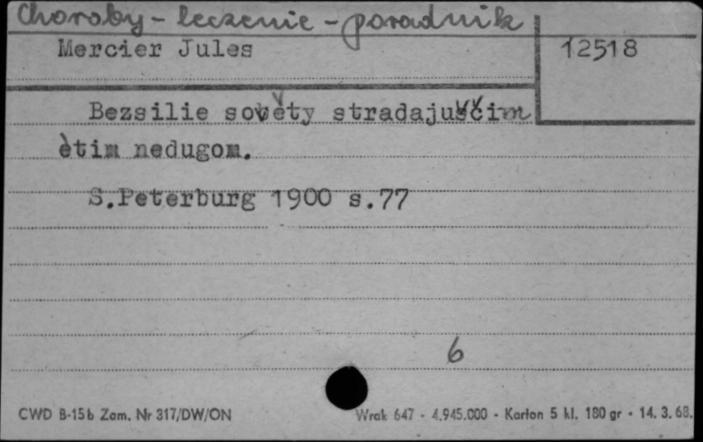 Choroby - leczenie - poradnik
Mercier Jules
12518
Bezsilie sověty stradajuščim
ètim nedugom.
S.Peterburg 1900 s.77
6
CWD B-15b Zam. Nr 317/DW/ON
Wrak 647 - 4.945.000 - Karton 5 kl. 180 gr - 14. 3. 68.